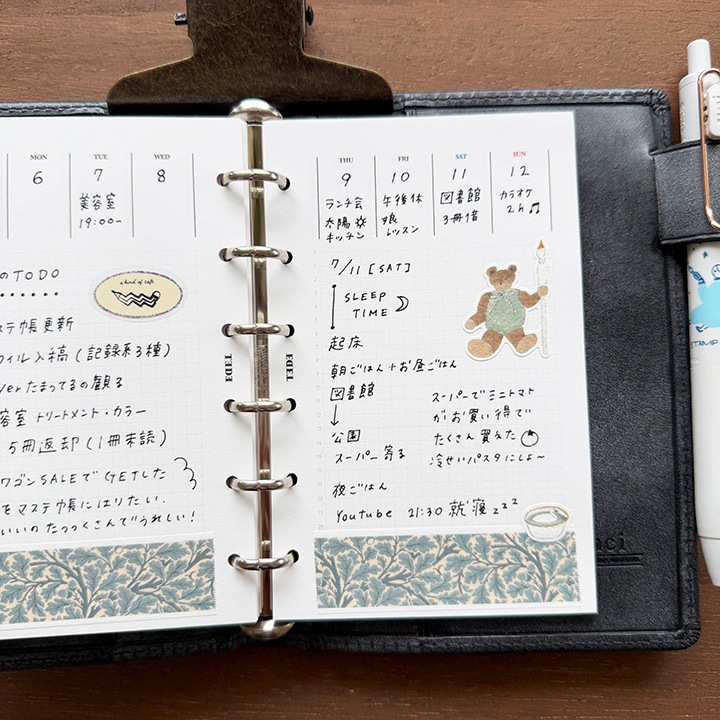 MON
6
TUE
7
美容室
19:00-
WED
8
のTODO
a bird of cafe
ステ帳更新
フィル入稿(記録系3種)
verたまってるの観る
容室 トリートメント・カラー
5冊返却(1冊未読)
ワゴンSALEでGETした
をマステ帳にはりたい.
いいのたっっくさんでうれしい!
TƎDƎ
TEDE
THU
9
ランチ会
太陽
キッチン
FRI
10
午後休
娘
レッスン
SAT
11
図書館
3冊借
SUN
12
カラオケ
2h♫
7/11[SAT]
SLEEP
TIME
起床
朝ごはん+お昼ごはん
図書館
↓
公園
スーパー寄る
夜ごはん
Youtube 21:30 就寝zzz
スーパーでミニトマト
がお買い得で
たくさん買えた
冷せいパスタにしよ〜
nci
STAMP